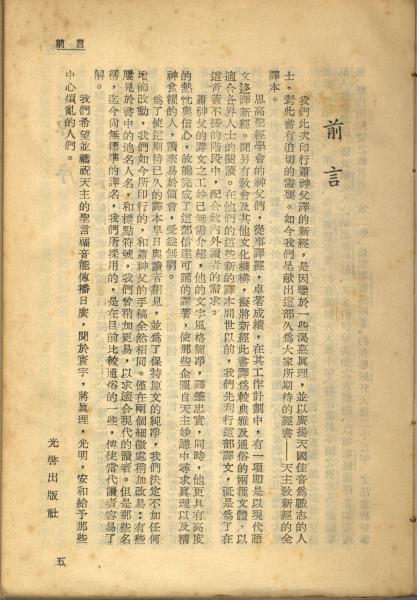 前言
前言
我們此次印行蕭神父譯的新經，是因鑒於一些渴慕眞理，並以廣揚天國佳音為職志的人
士，對此書有迫切的需要。如今我們呈献出這部久為大家所期待的經書——天主敎新經的全
譯本。
思高聖經學會的神父們，從事譯經，卓著成績，在其工作計劃中，有一項卽是以現代語
文迻譯新經。聞另有敎會及其他文化機構，擬將新經此書譯為較典雅及通俗的兩種文體，以
適合各界人士的閱讀。在他們的這些新的譯本問世以前，我們先刋行這部譯文，祗是為了在
這靑黃不接的階段中，配合敎內外讀者的需求。
蕭神父的譯文之工妙已無需介紹，他的文字風格簡凈，譯筆忠實，同時，他更具有高度
的熱忱與信心，故能完成了這部信達可誦的譯著，使那些企圖自天主妙諦中尋求眞理以及精
神食糧的人，讀來易於領會，受益無窮。
為了使這期待已久的譯本早日與讀者相見，並為了保持原文的純淨，我們決定不加任何
增飾改動，我們如今所印行的，和蕭神父的手稿全然相同。僅在兩個細微處稍加改易：有些
屢見於書中的地名人名，和標點符號，我們曾稍加更易，以求適合現代的讀者。但是那些名
稱，迄今尚無標準的譯名，我們所採用的，是在目前比較通俗的一些，俾使當代讀者容易了
解。
我們希望並禱祝天主的聖言福音能傳播日廣，聞於寰宇，將眞理，光明，安和給予那些
中心煩亂的人們。
光啓出版社
五